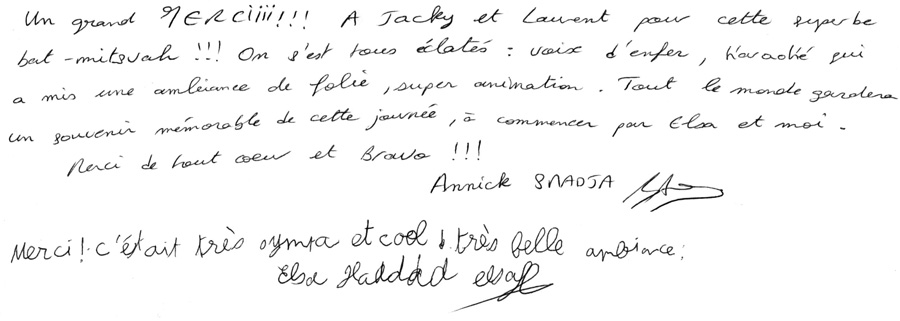 Un grand MERCiiii!!! A Jacky et Laurent pour cette superbe
bat-mitsvah !!! On s'est tous élatés : voix d'enfer, karaoké qui
a mis une ambiance de folie, super animation. Tout le monde gardera
un souvenir mémorable de cette journée, à commencer par Elsa et moi.
Merci de tout coeur et Bravo !!!
Annick SMADJA
Merci! c'était très sympa et cool ! très belle ambiance.
Elsa Haddad elsa